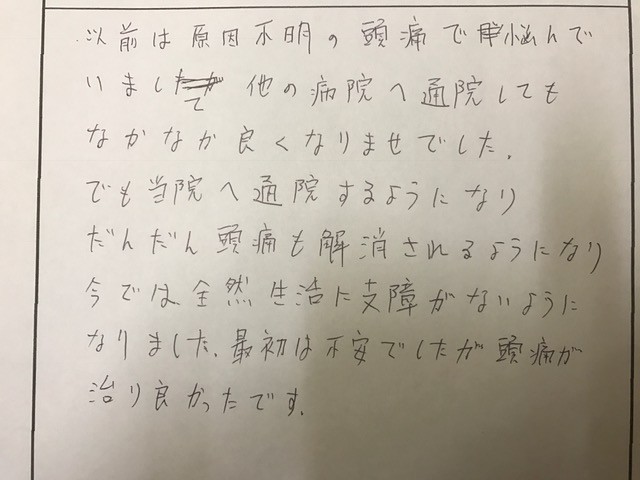 以前は原因不明の頭痛で悩んで
いまして 他の病院へ通院しても
なかなか良くなりませでした。
でも当院へ通院するようになり
だんだん頭痛も解消されるようになり
今では全然生活に支障がないように
なりました。最初は不安でしたが頭痛が
治り良かったです。